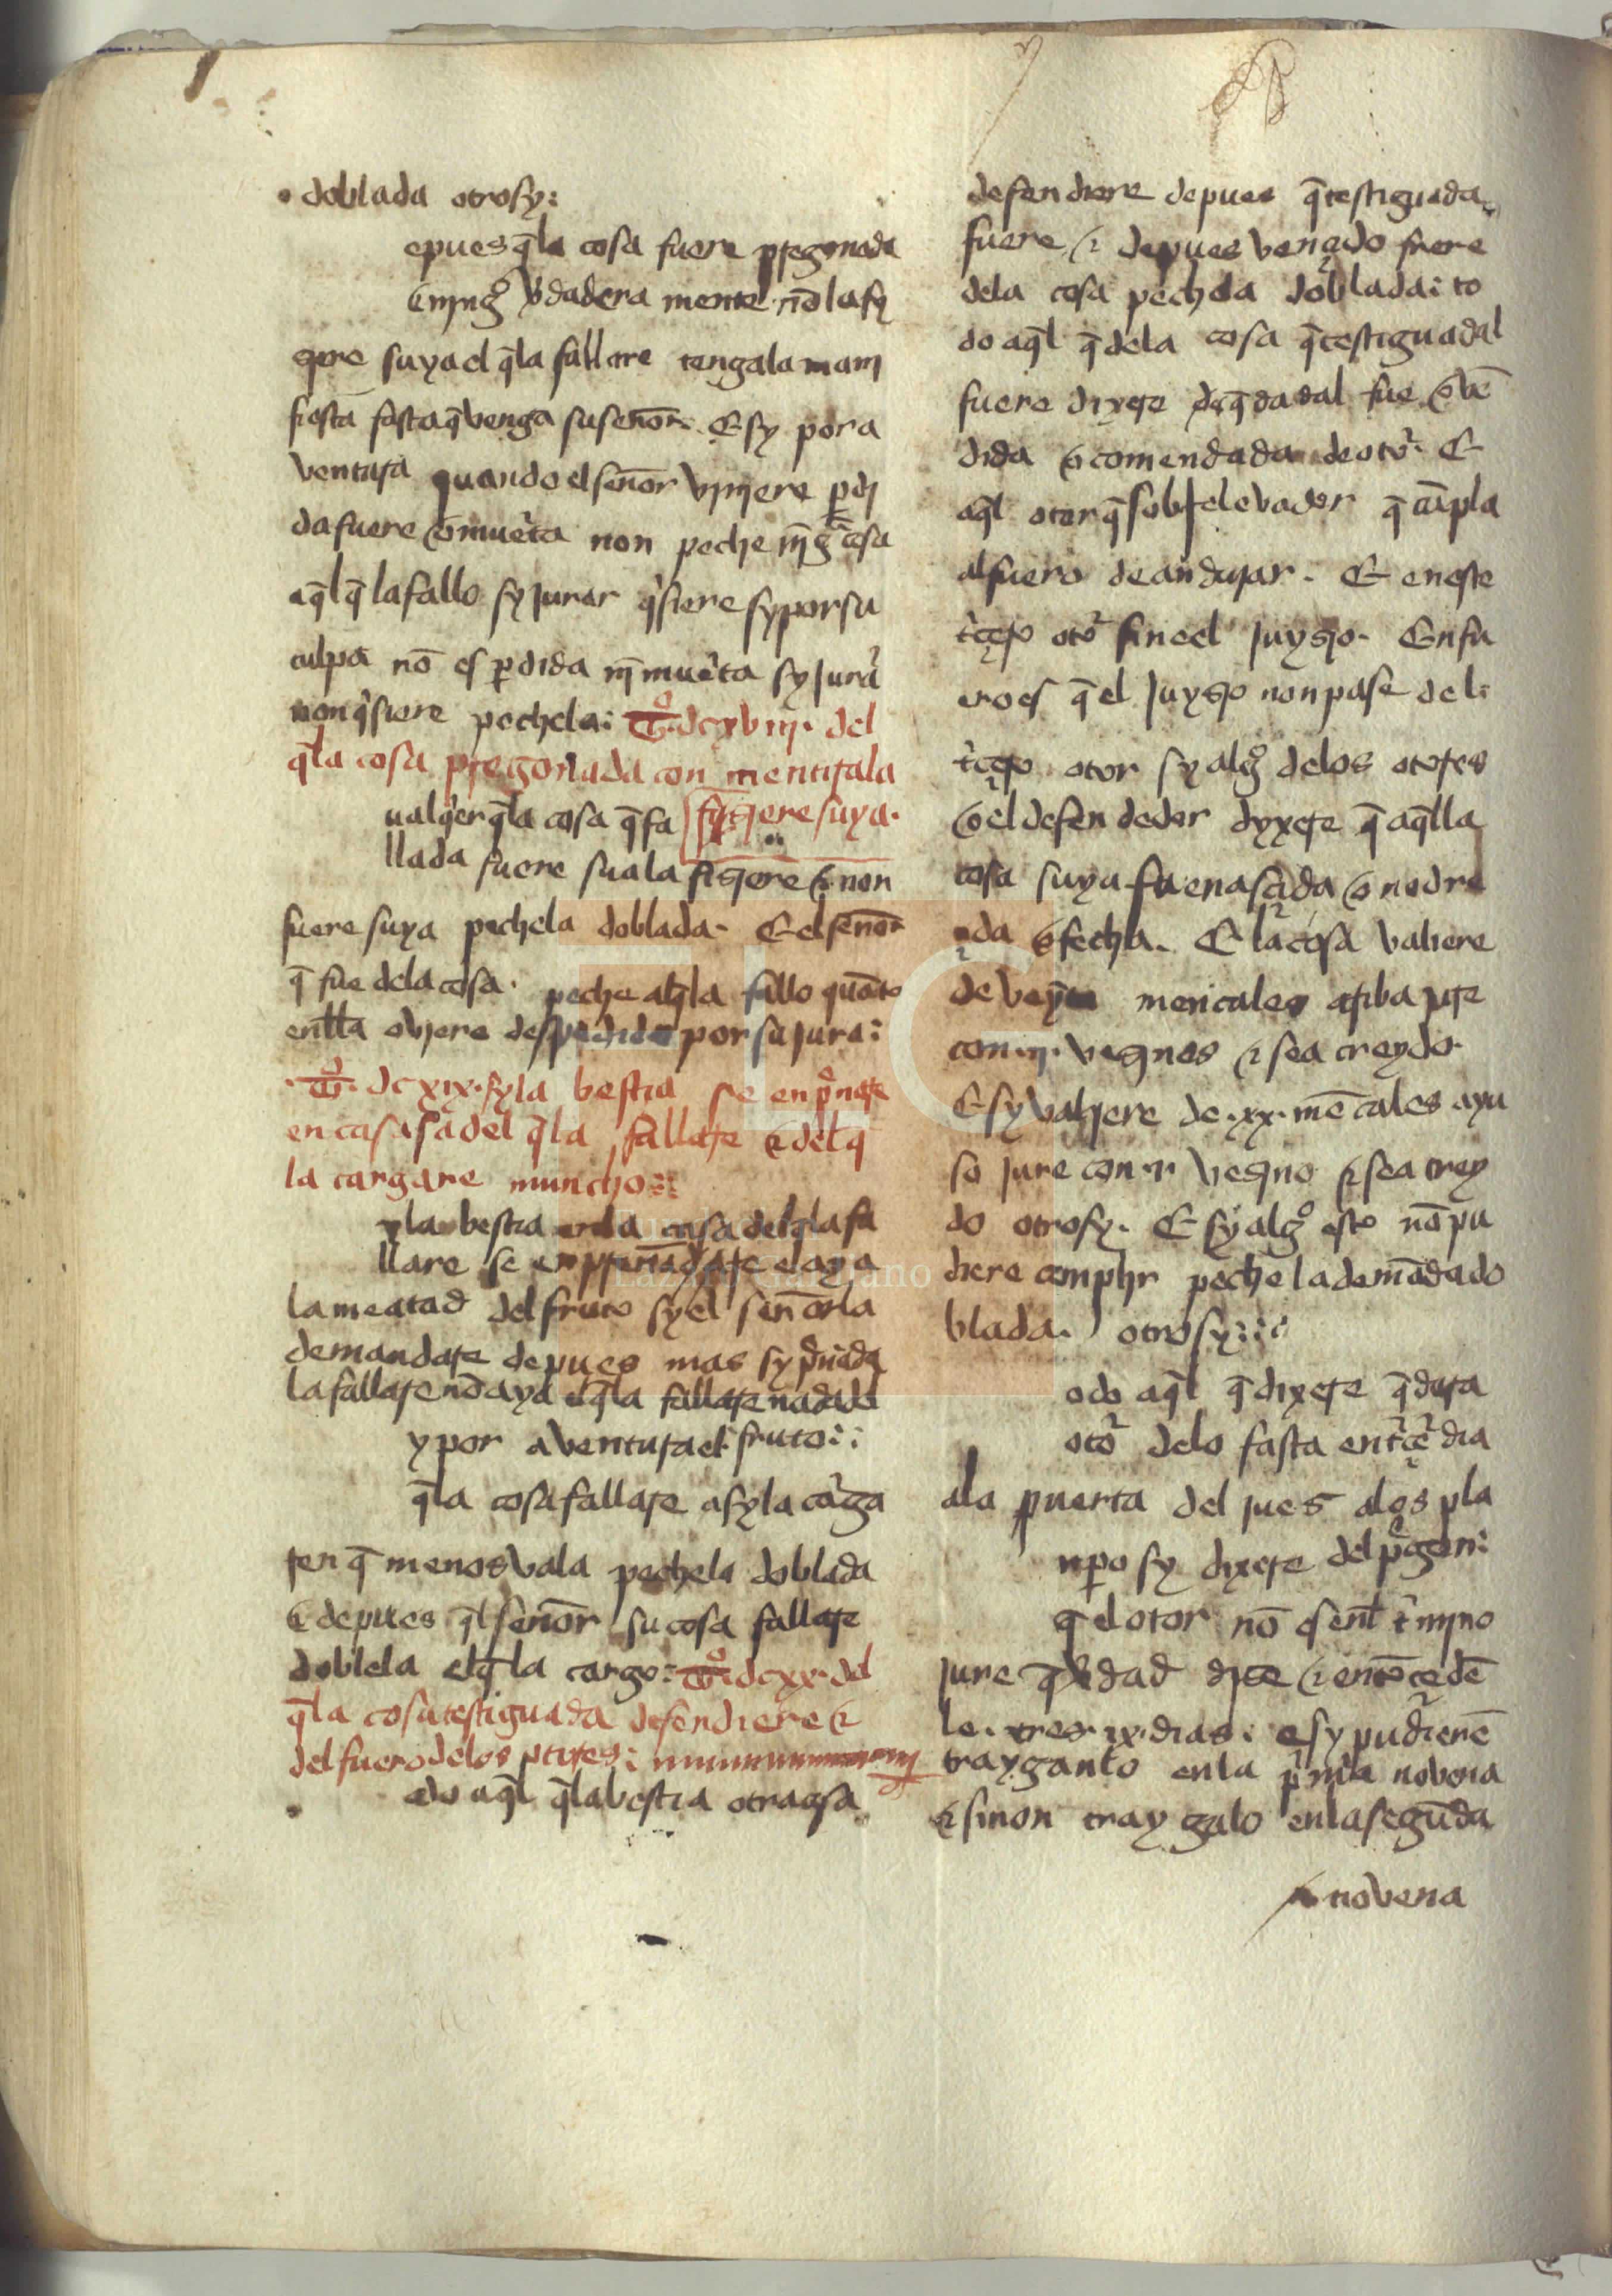 doblada otrosy:
epues q̄la cosa fuere pregonada
⁊ njngº v̉dadera mente nō la fy
ziere suya el q̄la fallare tengala manj
fiesta fasta q̄ venga su señor. E sy por a
ventura quando el señor vjnjere ꝑdj
da fuere o mueˀta non peche nj̄gˀa cosa
aq̄l q̄ la fallo sy jurar qˀsiere sy por su
culpa nō es ꝑdida nj̄ mueˀta sy jurar
non qˀsiere pechela: tº. dcxviij. del
q̄la cosa pregonada con mentira la
ualqˀer q̄la cosa q̄ fa fiziere suya.
llada fuere suala fiziere ⁊ non
fuere suya pechela doblada. E el señor
q̄ fue dela cosa. peche al q̄la fallo quāto
enlla oviere despendido por su jura:
tº. dcxix. sy la bestia se enpˀnare
en casa del q̄la fallare ⁊ del q̄
la cargare muncho:
y la bestia en la casa del q̄ la fa
llare se enprennadare el aya
la meatad del fruto sy el señor la
demandare depues mas sy pˀñada
la fallare nō aya el q̄la fallare nada de
y por aventura el fruto:
q̄la cosa fallare asy la caˀga
ren q̄ menos vala pechela doblada
⁊ depues q̄l señor su cosa fallare
doblela el q̄ la cargo: tº. dcxx. del
q̄la cosa testiguada defendiere ⁊
del fuero delos otores:
odo aq̄l q̄la bestia o tra cosa
defendiere depues q̄ testiguada
fuere ⁊ depues vençido fuere
dela cosa pechela doblada: to
do aq̄l q̄ dela cosa q̄ testiguadal
fuere dixere q̄ dadal fue o vē
dida o comendada de otoˀ. E
aq̄l otor q̄ sobrelevador q̄ cūpla
al fuero de andujar. E en este
tˀçero otoˀ fine el juyzio. En fu
ero es q̄ el juyzio non pase del:
tˀçero otor sy algº delos otores
o el defendedor dyxere q̄ aq̄lla
cosa suya fue nasçida o nodre
çida o fecha. E la cosa valiere
de veynte mencales arriba jure
con .ij. vezinos ⁊ sea creydo.
E sy valiere de .xx. mēcales ayu
so jure con .i. vezino ⁊ sea crey
do otrosy. E sy algº esto nō pu
diere complir peche la demāda do
blada. otrosy:
odo aq̄l q̄ dixere q̄ dara
otoˀ delo fasta en tˀçeˀ dia
ala puerta del jues alos pla
njpo sy dixere del pˀgon:
q̄ el otor nō es enl tˀmjno
jure q̄ v̉dad dize ⁊ entōçe dē
le. tres. ix. dias: e sy pudierenē
trayganlo en la pˀmˀa novena
⁊ sinon traygalo en la segūda
novena